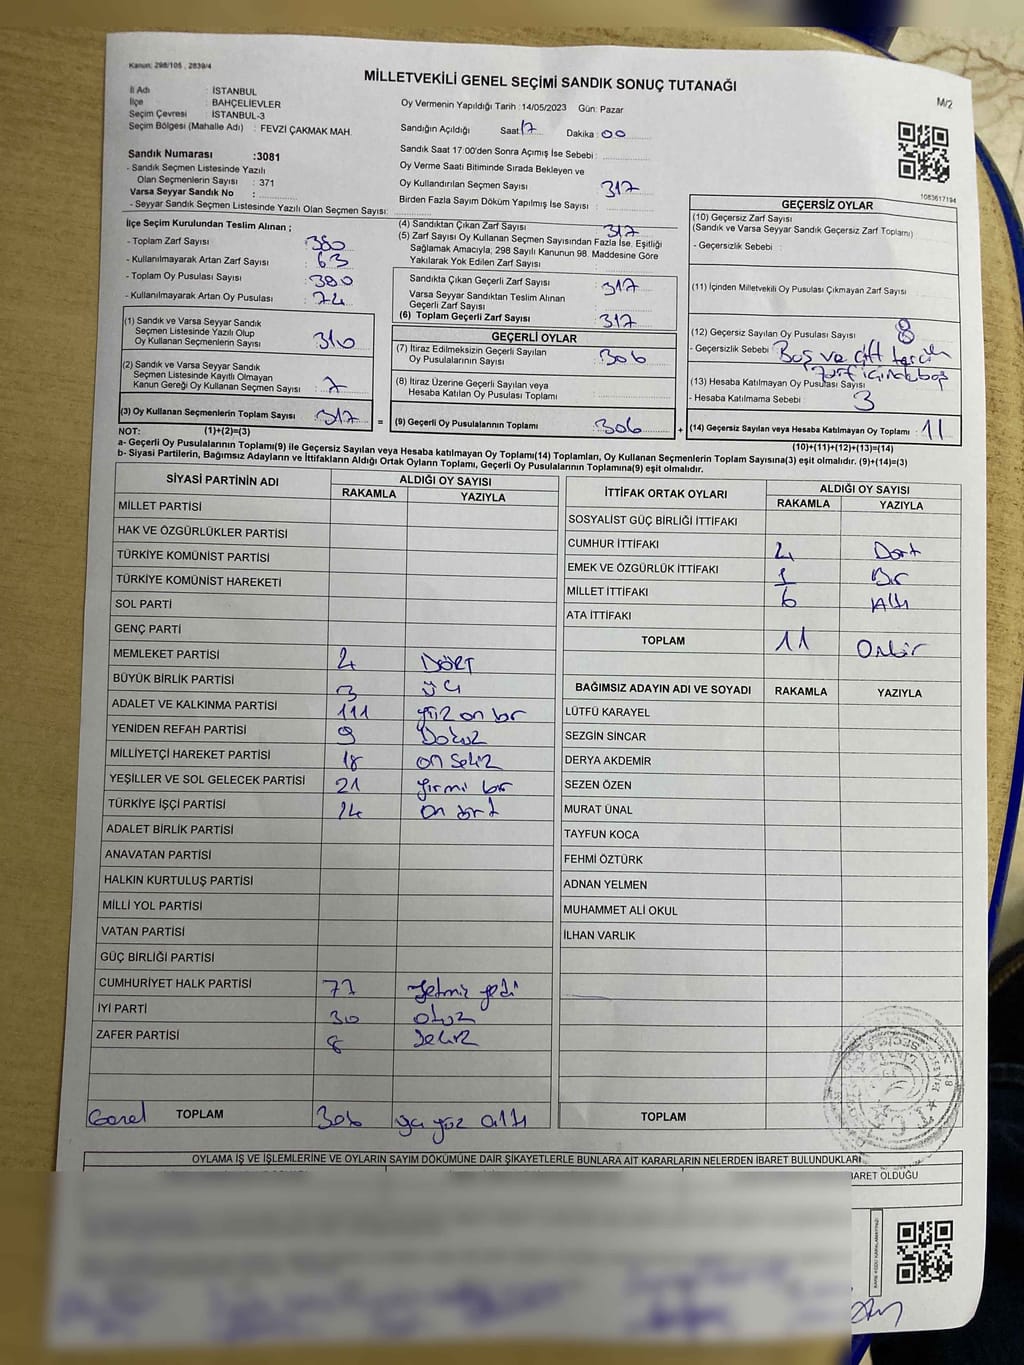 Kanun: 298/105 , 2839/4
MİLLETVEKİLİ GENEL SEÇİMİ SANDIK SONUÇ TUTANAĞI
M/2
İl Adı : İSTANBUL
İlçe : BAHÇELİEVLER
Seçim Çevresi : İSTANBUL-3
Seçim Bölgesi (Mahalle Adı) : FEVZİ ÇAKMAK MAH.
Sandık Numarası :3081
- Sandık Seçmen Listesinde Yazılı
Olan Seçmenlerin Sayısı : 371
Varsa Seyyar Sandık No :
- Seyyar Sandık Seçmen Listesinde Yazılı Olan Seçmen Sayısı:
Oy Vermenin Yapıldığı Tarih :14/05/2023 Gün: Pazar
Sandığın Açıldığı Saat: 17 Dakika : 00
Sandık Saat 17:00'den Sonra Açımış İse Sebebi :
Oy Verme Saati Bitiminde Sırada Bekleyen ve
Oy Kullandırılan Seçmen Sayısı 317
Birden Fazla Sayım Döküm Yapılmış İse Sayısı :
1083617194
İlçe Seçim Kurulundan Teslim Alınan ;
- Toplam Zarf Sayısı : 380
- Kullanılmayarak Artan Zarf Sayısı : 63
- Toplam Oy Pusulası Sayısı : 380
- Kullanılmayarak Artan Oy Pusulası : 74
(1) Sandık ve Varsa Seyyar Sandık
Seçmen Listesinde Yazılı Olup
Oy Kullanan Seçmenlerin Sayısı : 310
(2) Sandık ve Varsa Seyyar Sandık
Seçmen Listesinde Kayıtlı Olmayan
Kanun Gereği Oy Kullanan Seçmen Sayısı : 7
(3) Oy Kullanan Seçmenlerin Toplam Sayısı : 317 =
(4) Sandıktan Çıkan Zarf Sayısı : 317
(5) Zarf Sayısı Oy Kullanan Seçmen Sayısından Fazla İse, Eşitliği
Sağlamak Amacıyla, 298 Sayılı Kanunun 98. Maddesine Göre
Yakılarak Yok Edilen Zarf Sayısı :
Sandıkta Çıkan Geçerli Zarf Sayısı : 317
Varsa Seyyar Sandıktan Teslim Alınan
Geçerli Zarf Sayısı :
(6) Toplam Geçerli Zarf Sayısı : 317
GEÇERLİ OYLAR
(7) İtiraz Edilmeksizin Geçerli Sayılan
Oy Pusulalarının Sayısı : 306
(8) İtiraz Üzerine Geçerli Sayılan veya
Hesaba Katılan Oy Pusulası Toplamı :
(9) Geçerli Oy Pusulalarının Toplamı : 306 +
GEÇERSİZ OYLAR
(10) Geçersiz Zarf Sayısı :
(Sandık ve Varsa Seyyar Sandık Geçersiz Zarf Toplamı)
- Geçersizlik Sebebi :
(11) İçinden Milletvekili Oy Pusulası Çıkmayan Zarf Sayısı
(12) Geçersiz Sayılan Oy Pusulası Sayısı : 8
- Geçersizlik Sebebi : Boş ve çift tercih
zarf içinde boş
(13) Hesaba Katılmayan Oy Pusulası Sayısı :
- Hesaba Katılmama Sebebi : 3
(14) Geçersiz Sayılan veya Hesaba Katılmayan Oy Toplamı : 11
NOT: (1)+(2)=(3)
(10)+(11)+(12)+(13)=(14)
a- Geçerli Oy Pusulalarının Toplamı(9) ile Geçersiz Sayılan veya Hesaba katılmayan Oy Toplamı(14) Toplamları, Oy Kullanan Seçmenlerin Toplam Sayısına(3) eşit olmalıdır. (9)+(14)=(3)
b- Siyasi Partilerin, Bağımsız Adayların ve İttifakların Aldığı Ortak Oyların Toplamı, Geçerli Oy Pusulalarının Toplamına(9) eşit olmalıdır.
SİYASİ PARTİNİN ADI ALDIĞI OY SAYISI
RAKAMLA YAZIYLA
MİLLET PARTİSİ
HAK VE ÖZGÜRLÜKLER PARTİSİ
TÜRKİYE KOMÜNİST PARTİSİ
TÜRKİYE KOMÜNİST HAREKETİ
SOL PARTİ
GENÇ PARTİ
MEMLEKET PARTİSİ 4 DÖRT
BÜYÜK BİRLİK PARTİSİ 3 üç
ADALET VE KALKINMA PARTİSİ 111 yüz on bir
YENİDEN REFAH PARTİSİ 9 Dokuz
MİLLİYETÇİ HAREKET PARTİSİ 18 on sekiz
YEŞİLLER VE SOL GELECEK PARTİSİ 21 yirmi bir
TÜRKİYE İŞÇİ PARTİSİ 14 on dört
ADALET BİRLİK PARTİSİ
ANAVATAN PARTİSİ
HALKIN KURTULUŞ PARTİSİ
MİLLİ YOL PARTİSİ
VATAN PARTİSİ
GÜÇ BİRLİĞİ PARTİSİ
CUMHURİYET HALK PARTİSİ 77 yetmiş yedi
İYİ PARTİ 30 otuz
ZAFER PARTİSİ 8 Sekiz
Genel TOPLAM 306 üç yüz altı
İTTİFAK ORTAK OYLARI ALDIĞI OY SAYISI
RAKAMLA YAZIYLA
SOSYALİST GÜÇ BİRLİĞİ İTTİFAKI
CUMHUR İTTİFAKI 4 Dört
EMEK VE ÖZGÜRLÜK İTTİFAKI 1 Bir
MİLLET İTTİFAKI 6 Altı
ATA İTTİFAKI
TOPLAM 11 Onbir
BAĞIMSIZ ADAYIN ADI VE SOYADI RAKAMLA YAZIYLA
LÜTFÜ KARAYEL
SEZGİN SİNCAR
DERYA AKDEMİR
SEZEN ÖZEN
MURAT ÜNAL
TAYFUN KOCA
FEHMİ ÖZTÜRK
ADNAN YELMEN
MUHAMMET ALİ OKUL
İLHAN VARLIK
TOPLAM
OYLAMA İŞ VE İŞLEMLERİNE VE OYLARIN SAYIM DÖKÜMÜNE DAİR ŞİKAYETLERLE BUNLARA AİT KARARLARIN NELERDEN İBARET BULUNDUKLARI
BARET OLDUĞU